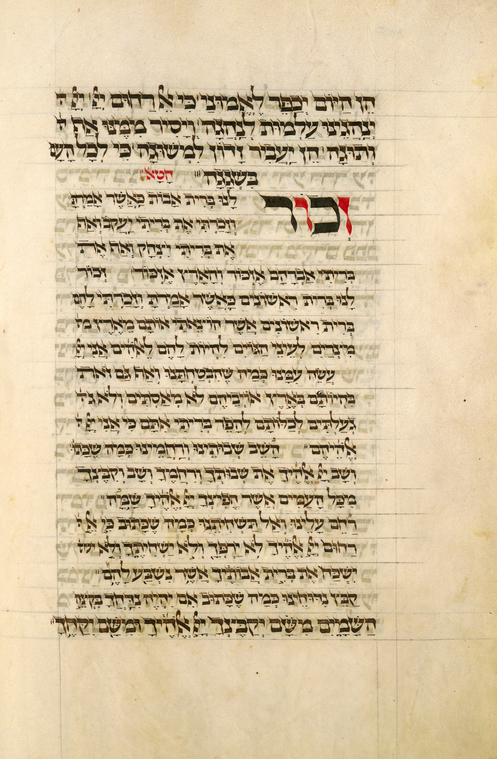 הן היום יכפר לאמוני כי אל רחום
ינהגנו עלמות לנהגה ויסור ממנו את
ותוגה הן יעבור זדון למשוגה כי לכל העם
בשגגה חטא
זכור
לנו ברית אבות כאשר אמרת
וזכרתי את בריתי יעקב ואת
את בריתי יצחק ואת את
בריתי אברהם אזכור והארץ אזכור זכור
לנו ברית ראשונים כאשר אמרת וזכרתי להם
ברית ראשונים אשר הוצאתי אותם מארץ
מצרים לעיני הגוים להיות להם לאלהים אני
עשה עמנו כמה שהבטחתנו ואף גם זאת
בהיותם בארץ אויביהם לא מאסתים ולא
געלתים לכלותם להפר בריתי אתם כי אני
אלהיהם השב שבותינו ורחמינו כמה שכתוב
ושב אלהיך את שבותך ורחמך ושב וקבצך
מכל העמים אשר הפיצך אלהיך שמה
רחם עלינו ואל תשחיתנו כמה שכתוב כי אל
רחום אלהיך לא ירפך ולא ישחיתך ולא
ישכח את ברית אבותיך אשר נשבע להם
קבץ נידחינו כמה שכתוב אם יהיה נדחך בקצה
השמים משם יקבצך אלהיך ומשם יקחך